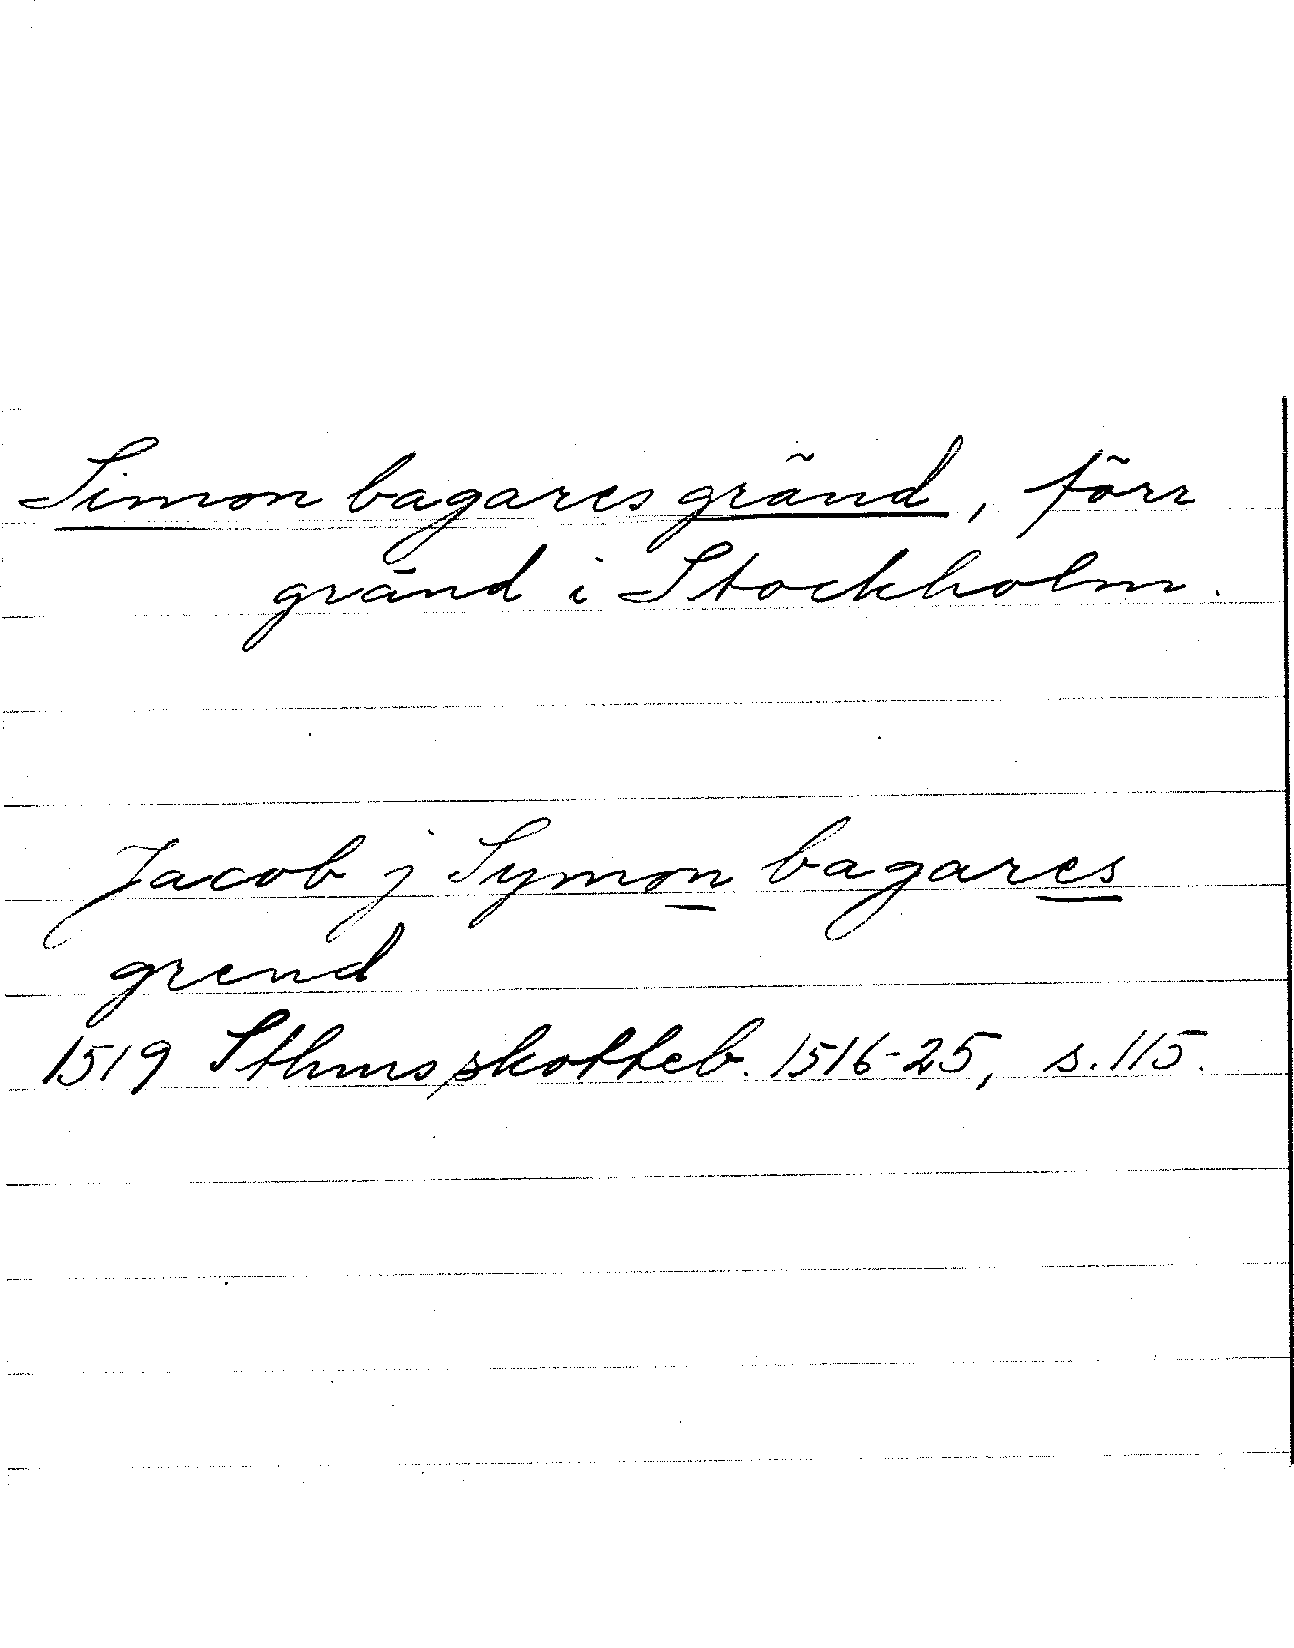 Simon bagares gränd, förr
gränd i Stockholm.
Jacob j Symon bagares
grend
1519 Sthms skotteb. 1516-25, s. 115.